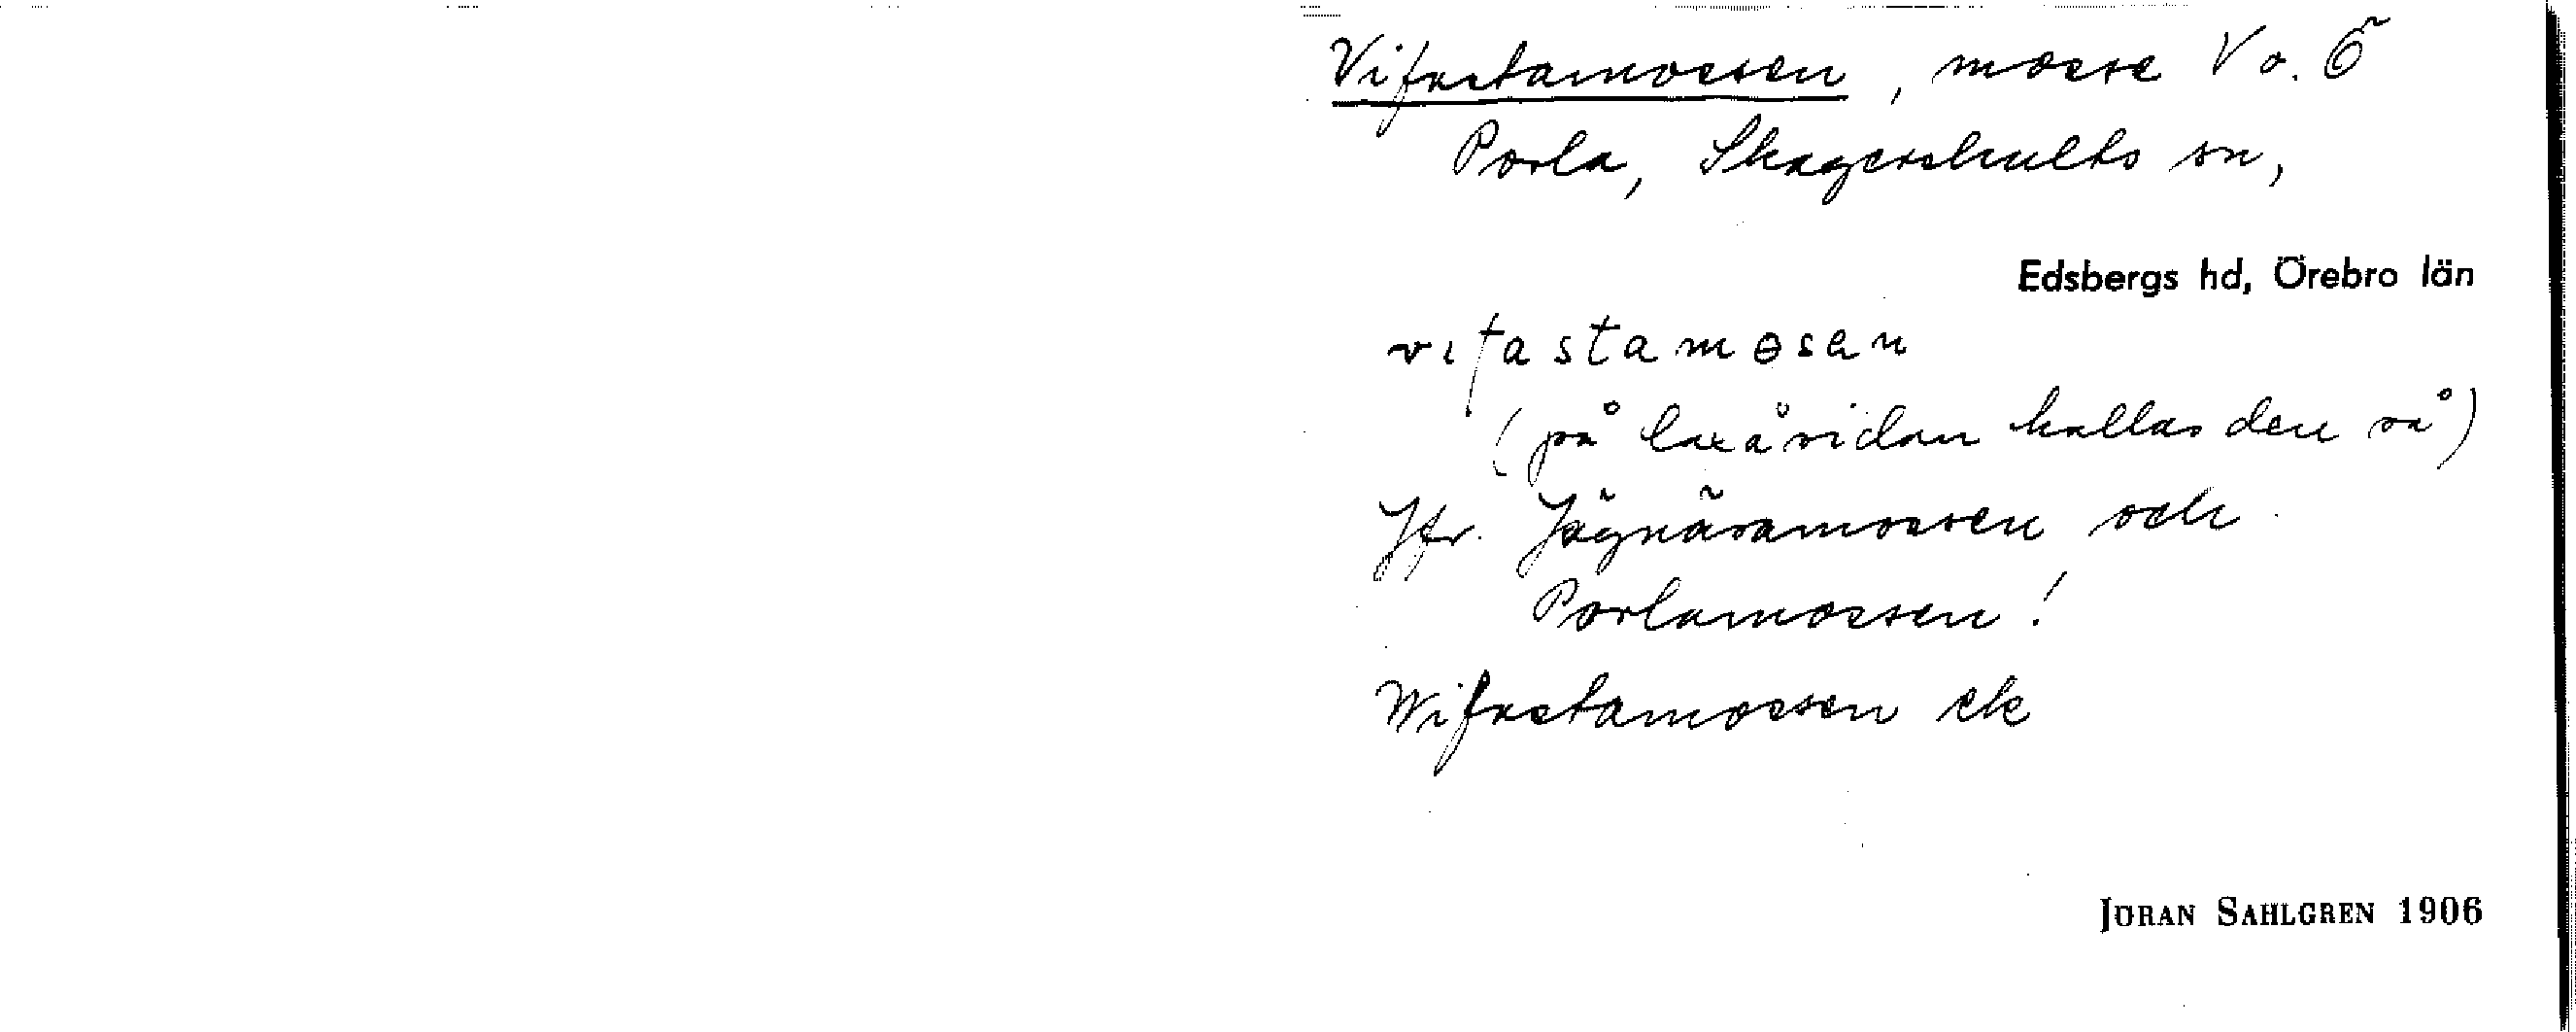 Vifastamossen, mosse V o. Ö
Porla, Skagershults sn,
Edsbergs hd, Örebro län
vifastamosen
(på laxåsidan kallas den så)
Jfr. Jägnäsamossen och
Porlamossen!
Wifastamossen ek
JÖRAN SAHLGREN 1906